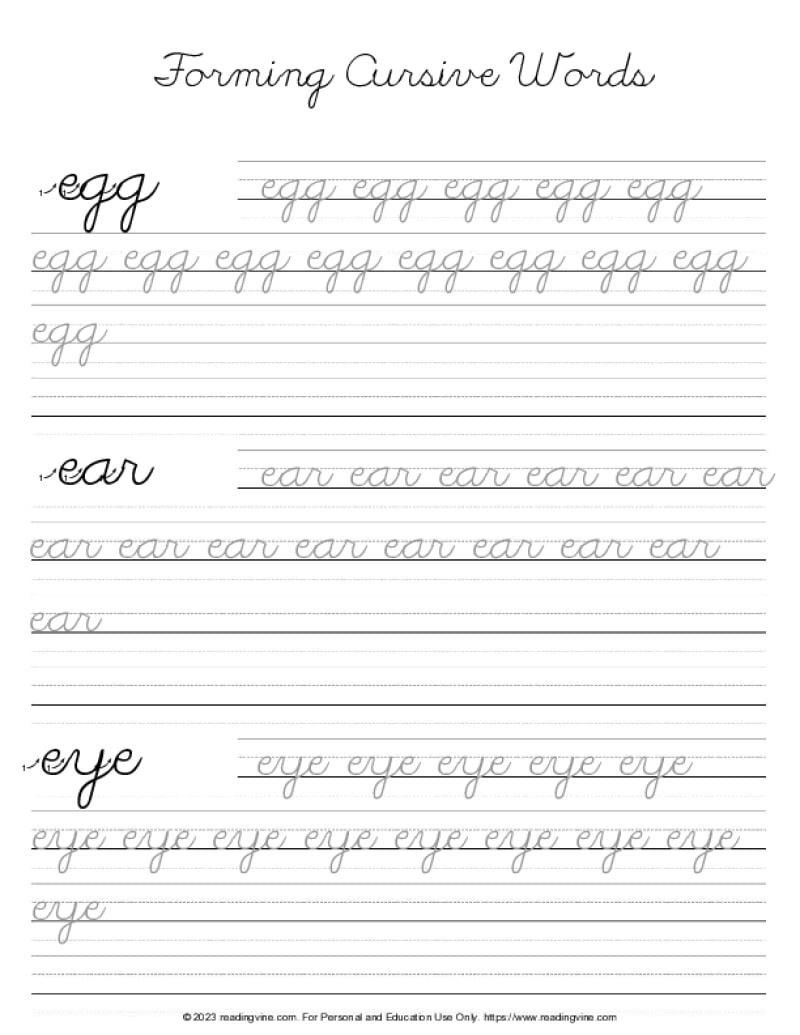 Forming Cursive Words
egg egg egg egg egg egg
egg egg egg egg egg egg egg egg
egg
ear ear ear ear ear ear ear
ear ear ear ear ear ear ear ear
ear
eye eye eye eye eye eye
eye eye eye eye eye eye eye eye
eye
© 2023 readingvine.com. For Personal and Education Use Only. https://www.readingvine.com